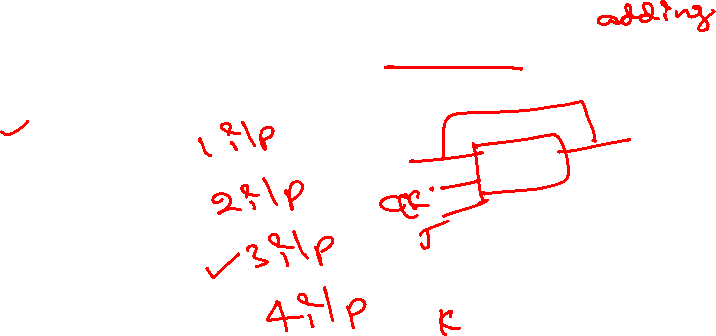 adding
1 i/p
2 i/p
3 i/p
4 i/p
J
K